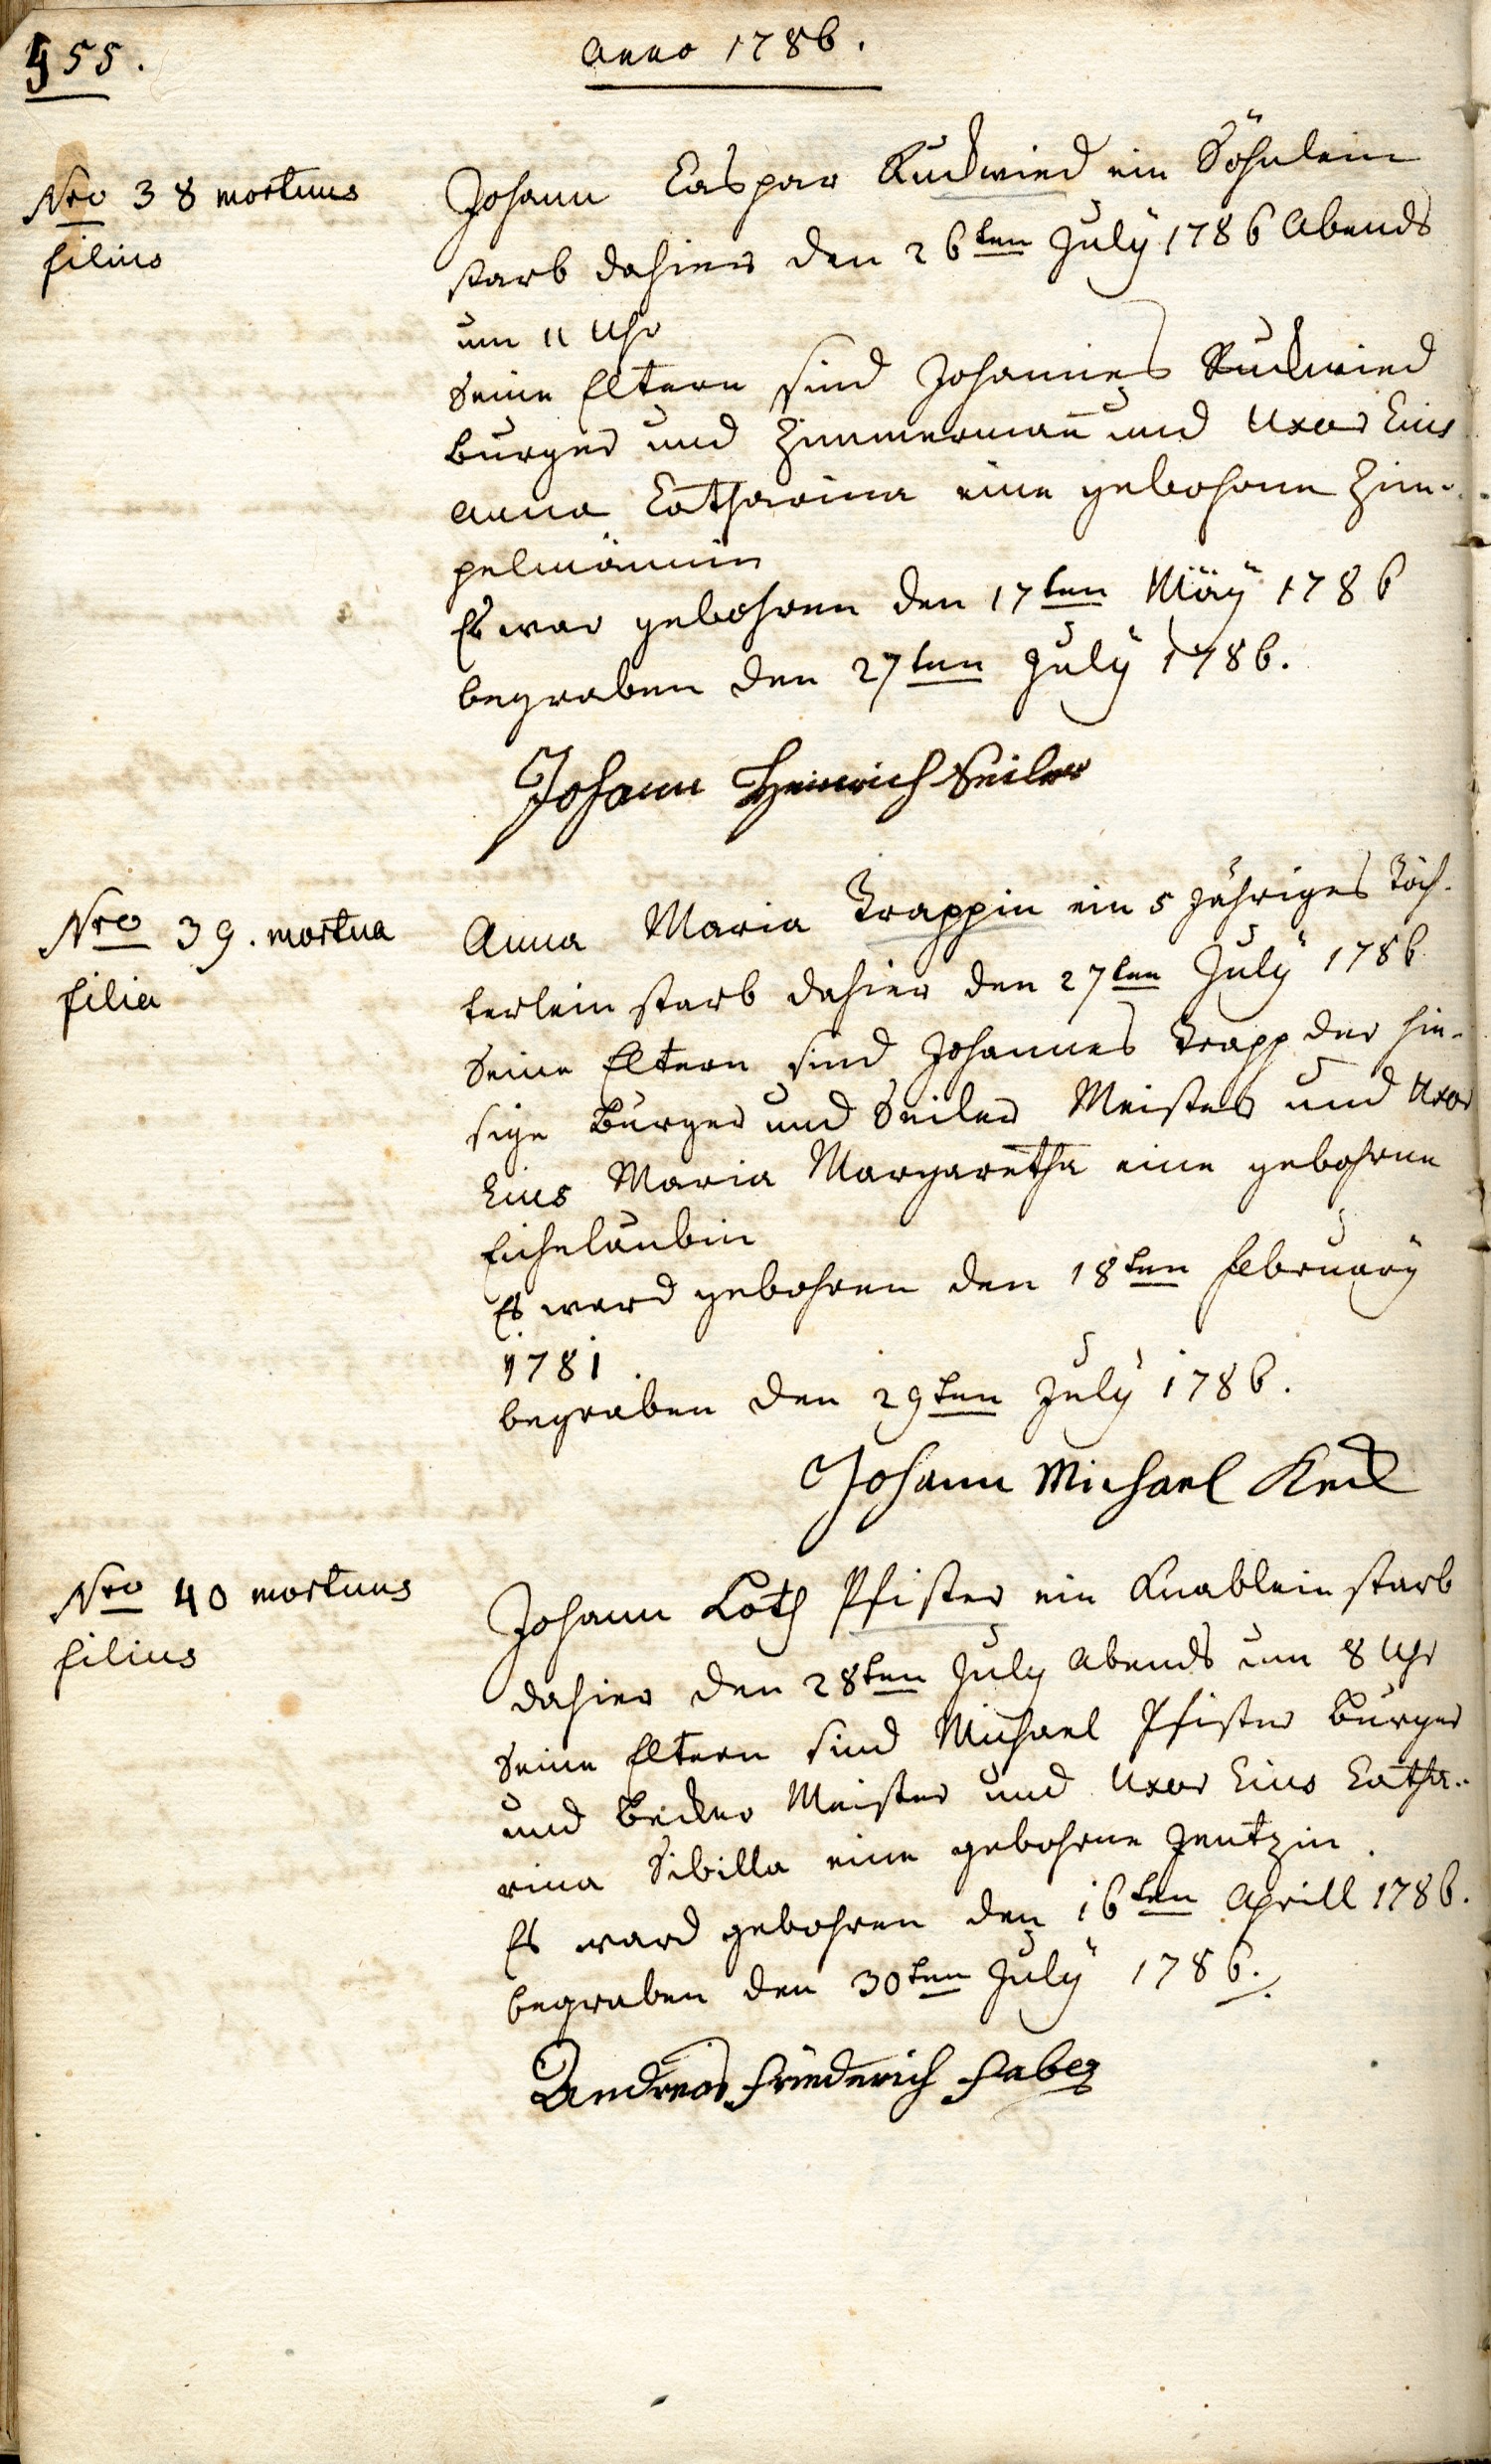 455.
Anno 1786.
Nro 38 mortuus
filius
Johann Caspar Ruckwied ein Söhnlein
starb dahier den 26ten July 1786 Abends
um 11 Uhr
Seine Eltern sind Johannes Ruckwied
Burger und Zimmermañ und Uxor Eius
Anna Catharina eine gebohrne Zim-
pelmännin
Es war gebohren den 17ten Mäÿ 1786
begraben den 27ten Julÿ 1786.
Johann Heinrich Seiler
Nro 39. mortua
filia
Anna Maria Trappin ein 5 jähriges Töch-
terlein starb dahier den 27ten Julÿ 1786
Seine Eltern sind Johannes Trapp der hie-
sige Burger und Seiler Meister und Uxor
Eius Maria Margaretha eine gebohrne
Eichelaubin
Es ward gebohren den 18ten February
1781.
begraben den 29ten July 1786.
Johann Michael
Nro 40 mortuus
filius
Johann Loth Pfister ein Knablein starb
dahier den 28ten July Abends um 8 Uhr
Seine Eltern sind Michael Pfister Burger
und Becker Meister und Uxor Eius Catha-
rina Sibilla eine gebohrne Jentzin
Es ward gebohren den 16ten Aprill 1786.
begraben den 30ten Julÿ 1786.
Andreas Friederich Faber